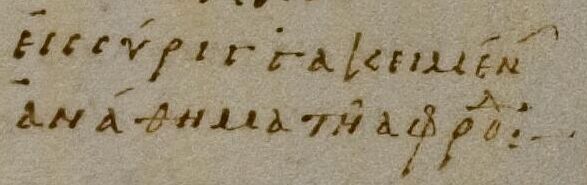 εἰς σύριγγα κειμέν
ἀνάθημα τῆ ἀφροδ :-